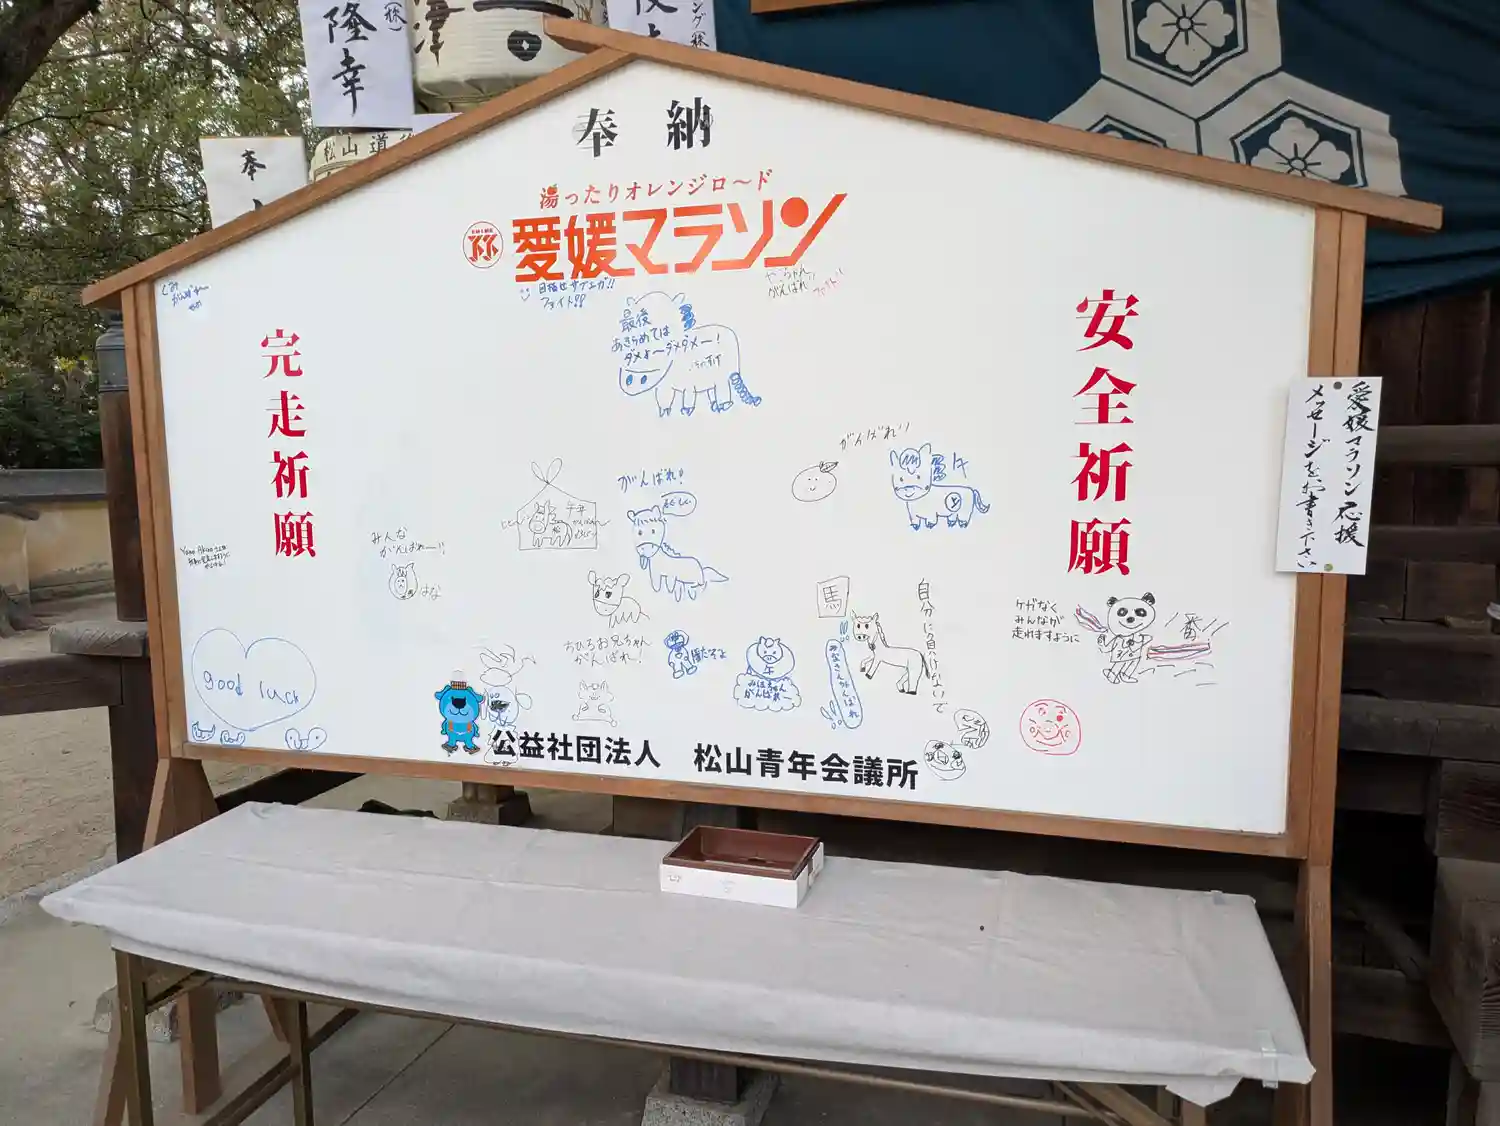 隆幸
(株)
津
奉
松山 道
奉 納
湯ったりオレンジロ〜ド
愛媛マラソン
目指せサブエガ!!
ファイト!!
やーちゃん
がんばれ
完走祈願
安全祈願
愛媛マラソン応援
メッセージをお書き下さい
最後
あきらめては
ダメよ〜ダメダメー!
がんばれ!!
がんばれ!
午年
みんな
がんばれー!!
はな
ちひろお兄ちゃん
がんばれ!
馬
みなさんがんばれ
自分に負けないで
ケガなく
みんなが
走れますように
一番
午
がんばれー
good luck
公益社団法人 松山青年会議所